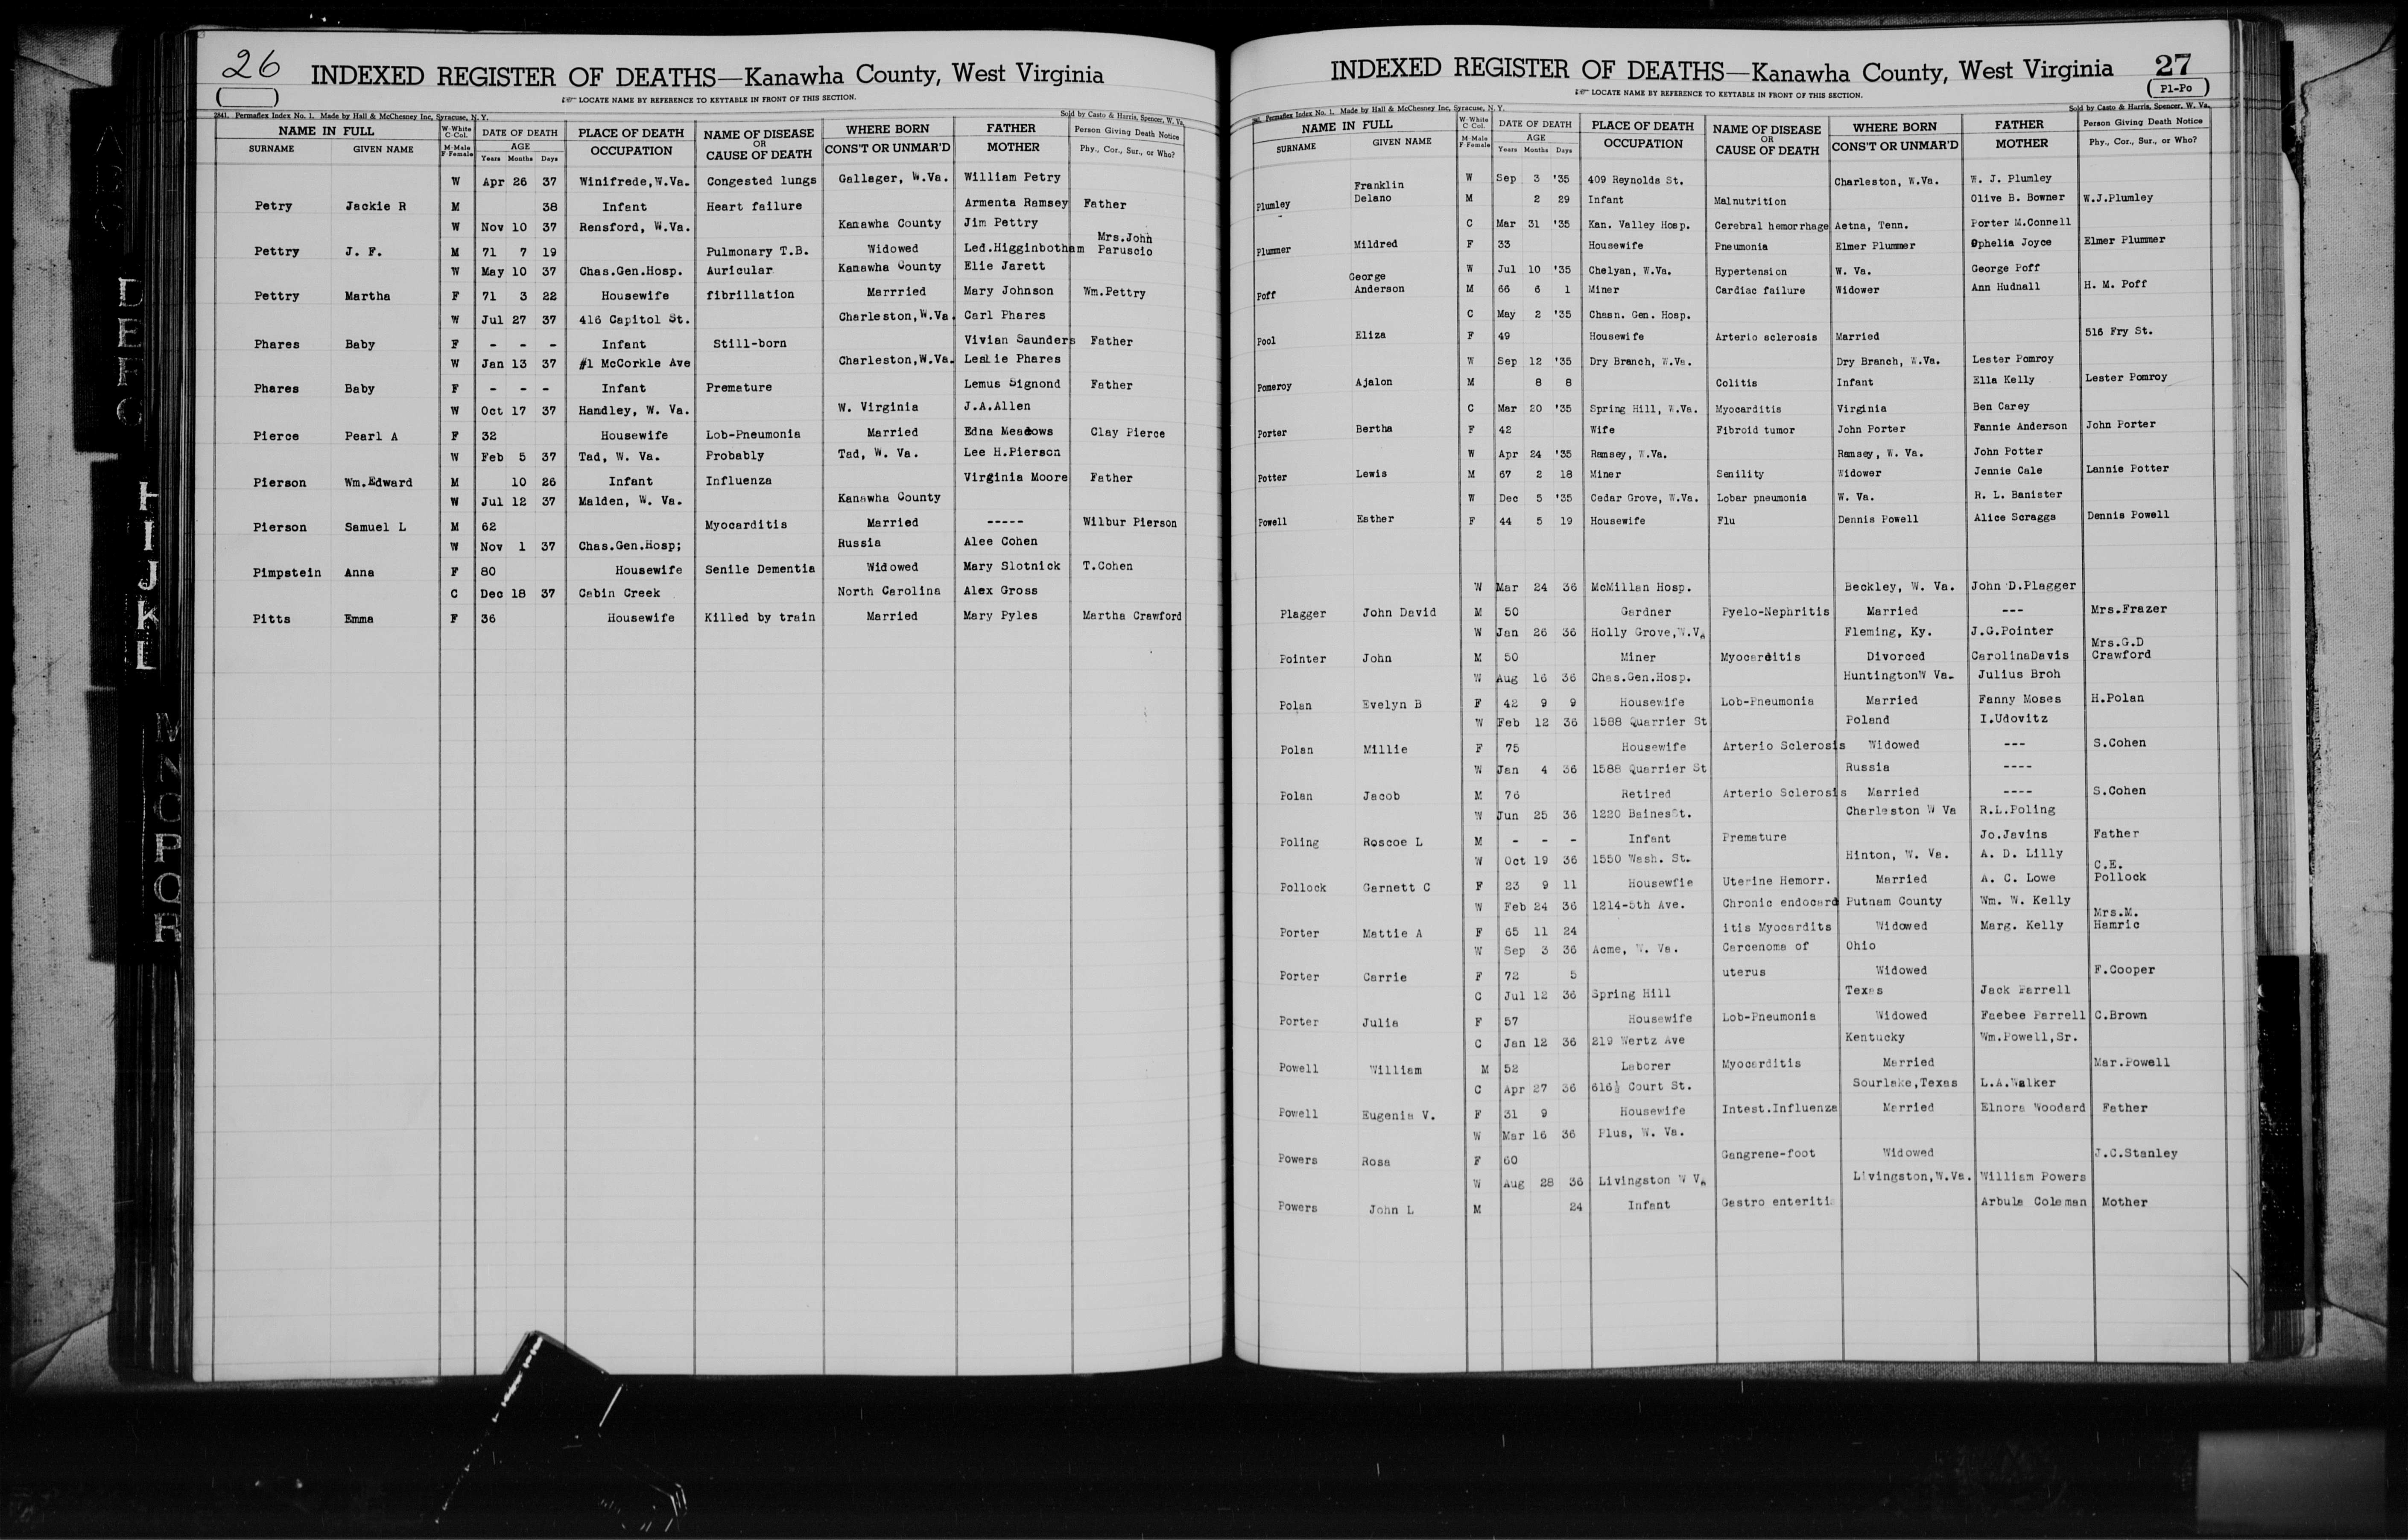 26
INDEXED REGISTER OF DEATHS—Kanawha County, West Virginia
☞ LOCATE NAME BY REFERENCE TO KEYTABLE IN FRONT OF THIS SECTION.
2841. Permaflex Index No. 1. Made by Hall & McChesney Inc, Syracuse, N. Y. Sold by Casto & Harris, Spencer, W. Va.
NAME IN FULL W-White C-Col. DATE OF DEATH PLACE OF DEATH NAME OF DISEASE OR CAUSE OF DEATH WHERE BORN FATHER Person Giving Death Notice
SURNAME GIVEN NAME M-Male F-Female AGE Years Months Days OCCUPATION CONS'T OR UNMAR'D MOTHER Phy., Cor., Sur., or Who?
W Apr 26 37 Winifrede,W.Va. Congested lungs Gallager, W.Va. William Petry
Petry Jackie R M 38 Infant Heart failure Armenta Ramsey Father
W Nov 10 37 Rensford, W.Va. Kanawha County Jim Pettry
Pettry J. F. M 71 7 19 Pulmonary T.B. Widowed Led.Higginbotham Mrs.John Paruscio
W May 10 37 Chas.Gen.Hosp. Auricular Kanawha County Elie Jarett
Pettry Martha F 71 3 22 Housewife fibrillation Marrried Mary Johnson Wm.Pettry
W Jul 27 37 416 Capitol St. Charleston,W.Va. Carl Phares
Phares Baby F - - - Infant Still-born Vivian Saunders Father
W Jan 13 37 #1 McCorkle Ave Charleston,W.Va. Leslie Phares
Phares Baby F - - - Infant Premature Lemus Signond Father
W Oct 17 37 Handley, W. Va. W. Virginia J.A.Allen
Pierce Pearl A F 32 Housewife Lob-Pneumonia Married Edna Meadows Clay Pierce
W Feb 5 37 Tad, W. Va. Probably Tad, W. Va. Lee H.Pierson
Pierson Wm.Edward M 10 26 Infant Influenza Virginia Moore Father
W Jul 12 37 Malden, W. Va. Kanawha County
Pierson Samuel L M 62 Myocarditis Married ----- Wilbur Pierson
W Nov 1 37 Chas.Gen.Hosp; Russia Alee Cohen
Pimpstein Anna F 80 Housewife Senile Dementia Widowed Mary Slotnick T.Cohen
C Dec 18 37 Cabin Creek North Carolina Alex Gross
Pitts Emma F 36 Housewife Killed by train Married Mary Pyles Martha Crawford
INDEXED REGISTER OF DEATHS—Kanawha County, West Virginia 27
☞ LOCATE NAME BY REFERENCE TO KEYTABLE IN FRONT OF THIS SECTION. (Pl-Po)
Permaflex Index No. 1. Made by Hall & McChesney Inc, Syracuse, N. Y. Sold by Casto & Harris, Spencer, W. Va.
NAME IN FULL W-White C-Col. DATE OF DEATH PLACE OF DEATH NAME OF DISEASE OR CAUSE OF DEATH WHERE BORN FATHER Person Giving Death Notice
SURNAME GIVEN NAME M-Male F-Female AGE Years Months Days OCCUPATION CONS'T OR UNMAR'D MOTHER Phy., Cor., Sur., or Who?
W Sep 3 '35 409 Reynolds St. Charleston, W.Va. W. J. Plumley
Plumley Franklin Delano M 2 29 Infant Malnutrition Olive B. Bowner W.J.Plumley
C Mar 31 '35 Kan. Valley Hosp. Cerebral hemorrhage Aetna, Tenn. Porter M.Connell
Plummer Mildred F 33 Housewife Pneumonia Elmer Plummer Ophelia Joyce Elmer Plummer
W Jul 10 '35 Chelyan, W.Va. Hypertension W. Va. George Poff
Poff George Anderson M 66 6 1 Miner Cardiac failure Widower Ann Hudnall H. M. Poff
C May 2 '35 Chasn. Gen. Hosp.
Pool Eliza F 49 Housewife Arterio sclerosis Married 516 Fry St.
W Sep 12 '35 Dry Branch, W.Va. Dry Branch, W.Va. Lester Pomroy
Pomeroy Ajalon M 8 8 Colitis Infant Ella Kelly Lester Pomroy
C Mar 20 '35 Spring Hill, W.Va. Myocarditis Virginia Ben Carey
Porter Bertha F 42 Wife Fibroid tumor John Porter Fannie Anderson John Porter
W Apr 24 '35 Ramsey, W.Va. Ramsey, W. Va. John Potter
Potter Lewis M 67 2 18 Miner Senility Widower Jennie Cale Lannie Potter
W Dec 5 '35 Cedar Grove, W.Va. Lobar pneumonia W. Va. R. L. Banister
Powell Esther F 44 5 19 Housewife Flu Dennis Powell Alice Scraggs Dennis Powell
W Mar 24 36 McMillan Hosp. Beckley, W. Va. John D.Plagger
Plagger John David M 50 Gardner Pyelo-Nephritis Married --- Mrs.Frazer
W Jan 26 36 Holly Grove,W.Va Fleming, Ky. J.G.Pointer
Pointer John M 50 Miner Myocarditis Divorced CarolinaDavis Mrs.G.D Crawford
W Aug 16 36 Chas.Gen.Hosp. HuntingtonW Va. Julius Broh
Polan Evelyn B F 42 9 9 Housewife Lob-Pneumonia Married Fanny Moses H.Polan
W Feb 12 36 1588 Quarrier St Poland I.Udovitz
Polan Millie F 75 Housewife Arterio Sclerosis Widowed --- S.Cohen
W Jan 4 36 1588 Quarrier St Russia ----
Polan Jacob M 76 Retired Arterio Sclerosis Married ---- S.Cohen
W Jun 25 36 1220 BainesSt. Charleston W Va R.L.Poling
Poling Roscoe L M - - - Infant Premature Jo.Javins Father
W Oct 19 36 1550 Wash. St. Hinton, W. Va. A. D. Lilly
Pollock Garnett C F 23 9 11 Housewfie Uterine Hemorr. Married A. C. Lowe C.E. Pollock
W Feb 24 36 1214-5th Ave. Chronic endocard Putnam County Wm. W. Kelly
Porter Mattie A F 65 11 24 itis Myocardits Widowed Marg. Kelly Mrs.M. Hamric
W Sep 3 36 Acme, W. Va. Carcenoma of Ohio
Porter Carrie F 72 5 uterus Widowed F.Cooper
C Jul 12 36 Spring Hill Texas Jack Farrell
Porter Julia F 57 Housewife Lob-Pneumonia Widowed Faebee Farrell C.Brown
C Jan 12 36 219 Wertz Ave Kentucky Wm.Powell,Sr.
Powell William M 52 Laborer Myocarditis Married Mar.Powell
C Apr 27 36 616½ Court St. Sourlake,Texas L.A.Walker
Powell Eugenia V. F 31 9 Housewife Intest.Influenza Married Elnora Woodard Father
W Mar 16 36 Plus, W. Va.
Powers Rosa F 60 Gangrene-foot Widowed J.C.Stanley
W Aug 28 36 Livingston W Va Livingston,W.Va. William Powers
Powers John L M 24 Infant Gastro enteritis Arbula Coleman Mother